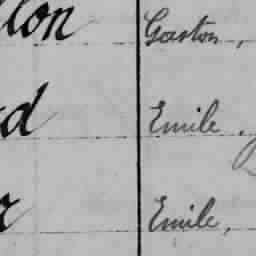 llon Gaston,
d Emile.
r Emile,